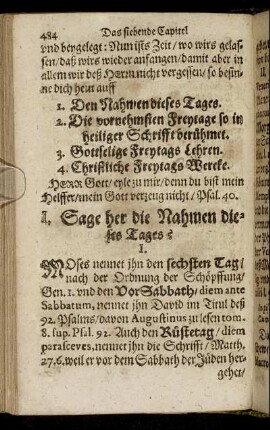 484
Das siebende Capitel
vnd beygelegt: Nun ists Zeit / wo wirs gelas-
sen / daß wirs wieder anfangen / damit aber in
allem wir deß Herrn nicht vergessen / so besin-
ne dich heut auff
1. Den Nahmen dieses Tages.
2. Die vornehmsten Freytage so in
heiliger Schrifft berühmet.
3. Gottselige Freytags Lehren.
4. Christliche Freytags Wercke.
HErr Gott / eyle zu mir / denn du bist mein
Helffer / mein Gott verzeug nicht / Psal. 40.
I. Sage her die Nahmen die-
ses Tages?
I.
MOses nennet jhn den sechsten Tag /
nach der Ordnung der Schöpffung /
Gen. 1. vnd den VorSabbath / diem ante
Sabbatum, nennet jhn David im Titul deß
92. Psalms / davon Augustinus zu lesen tom.
8. sup. Psl. 92. Auch den Rüstetag / diem
parasceves, nennet jhn die Schrifft / Matth.
27. 6. weil er vor dem Sabbath der Jüden her-
gehet /